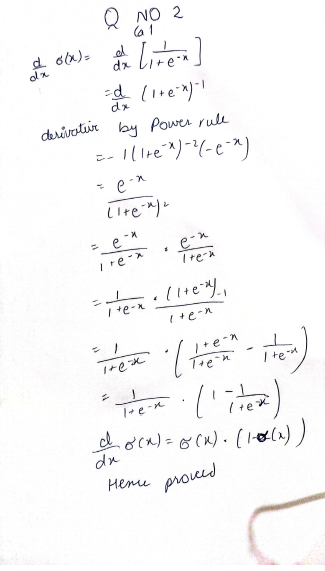 Q NO 2
Q1
d/dx σ(x) = d/dx [1/(1+e^-x)]
= d/dx (1+e^-x)^-1
derivative by Power rule
= -1(1+e^-x)^-2(-e^-x)
= e^-x/(1+e^-x)^2
= e^-x/(1+e^-x) · e^-x/(1+e^-x)
= 1/(1+e^-x) · (1+e^-x)-1/(1+e^-x)
= 1/(1+e^-x) · ((1+e^-x)/(1+e^-x) - 1/(1+e^-x))
= 1/(1+e^-x) · (1 - 1/(1+e^-x))
d/dx σ(x) = σ(x) · (1-σ(x))
Hence proved